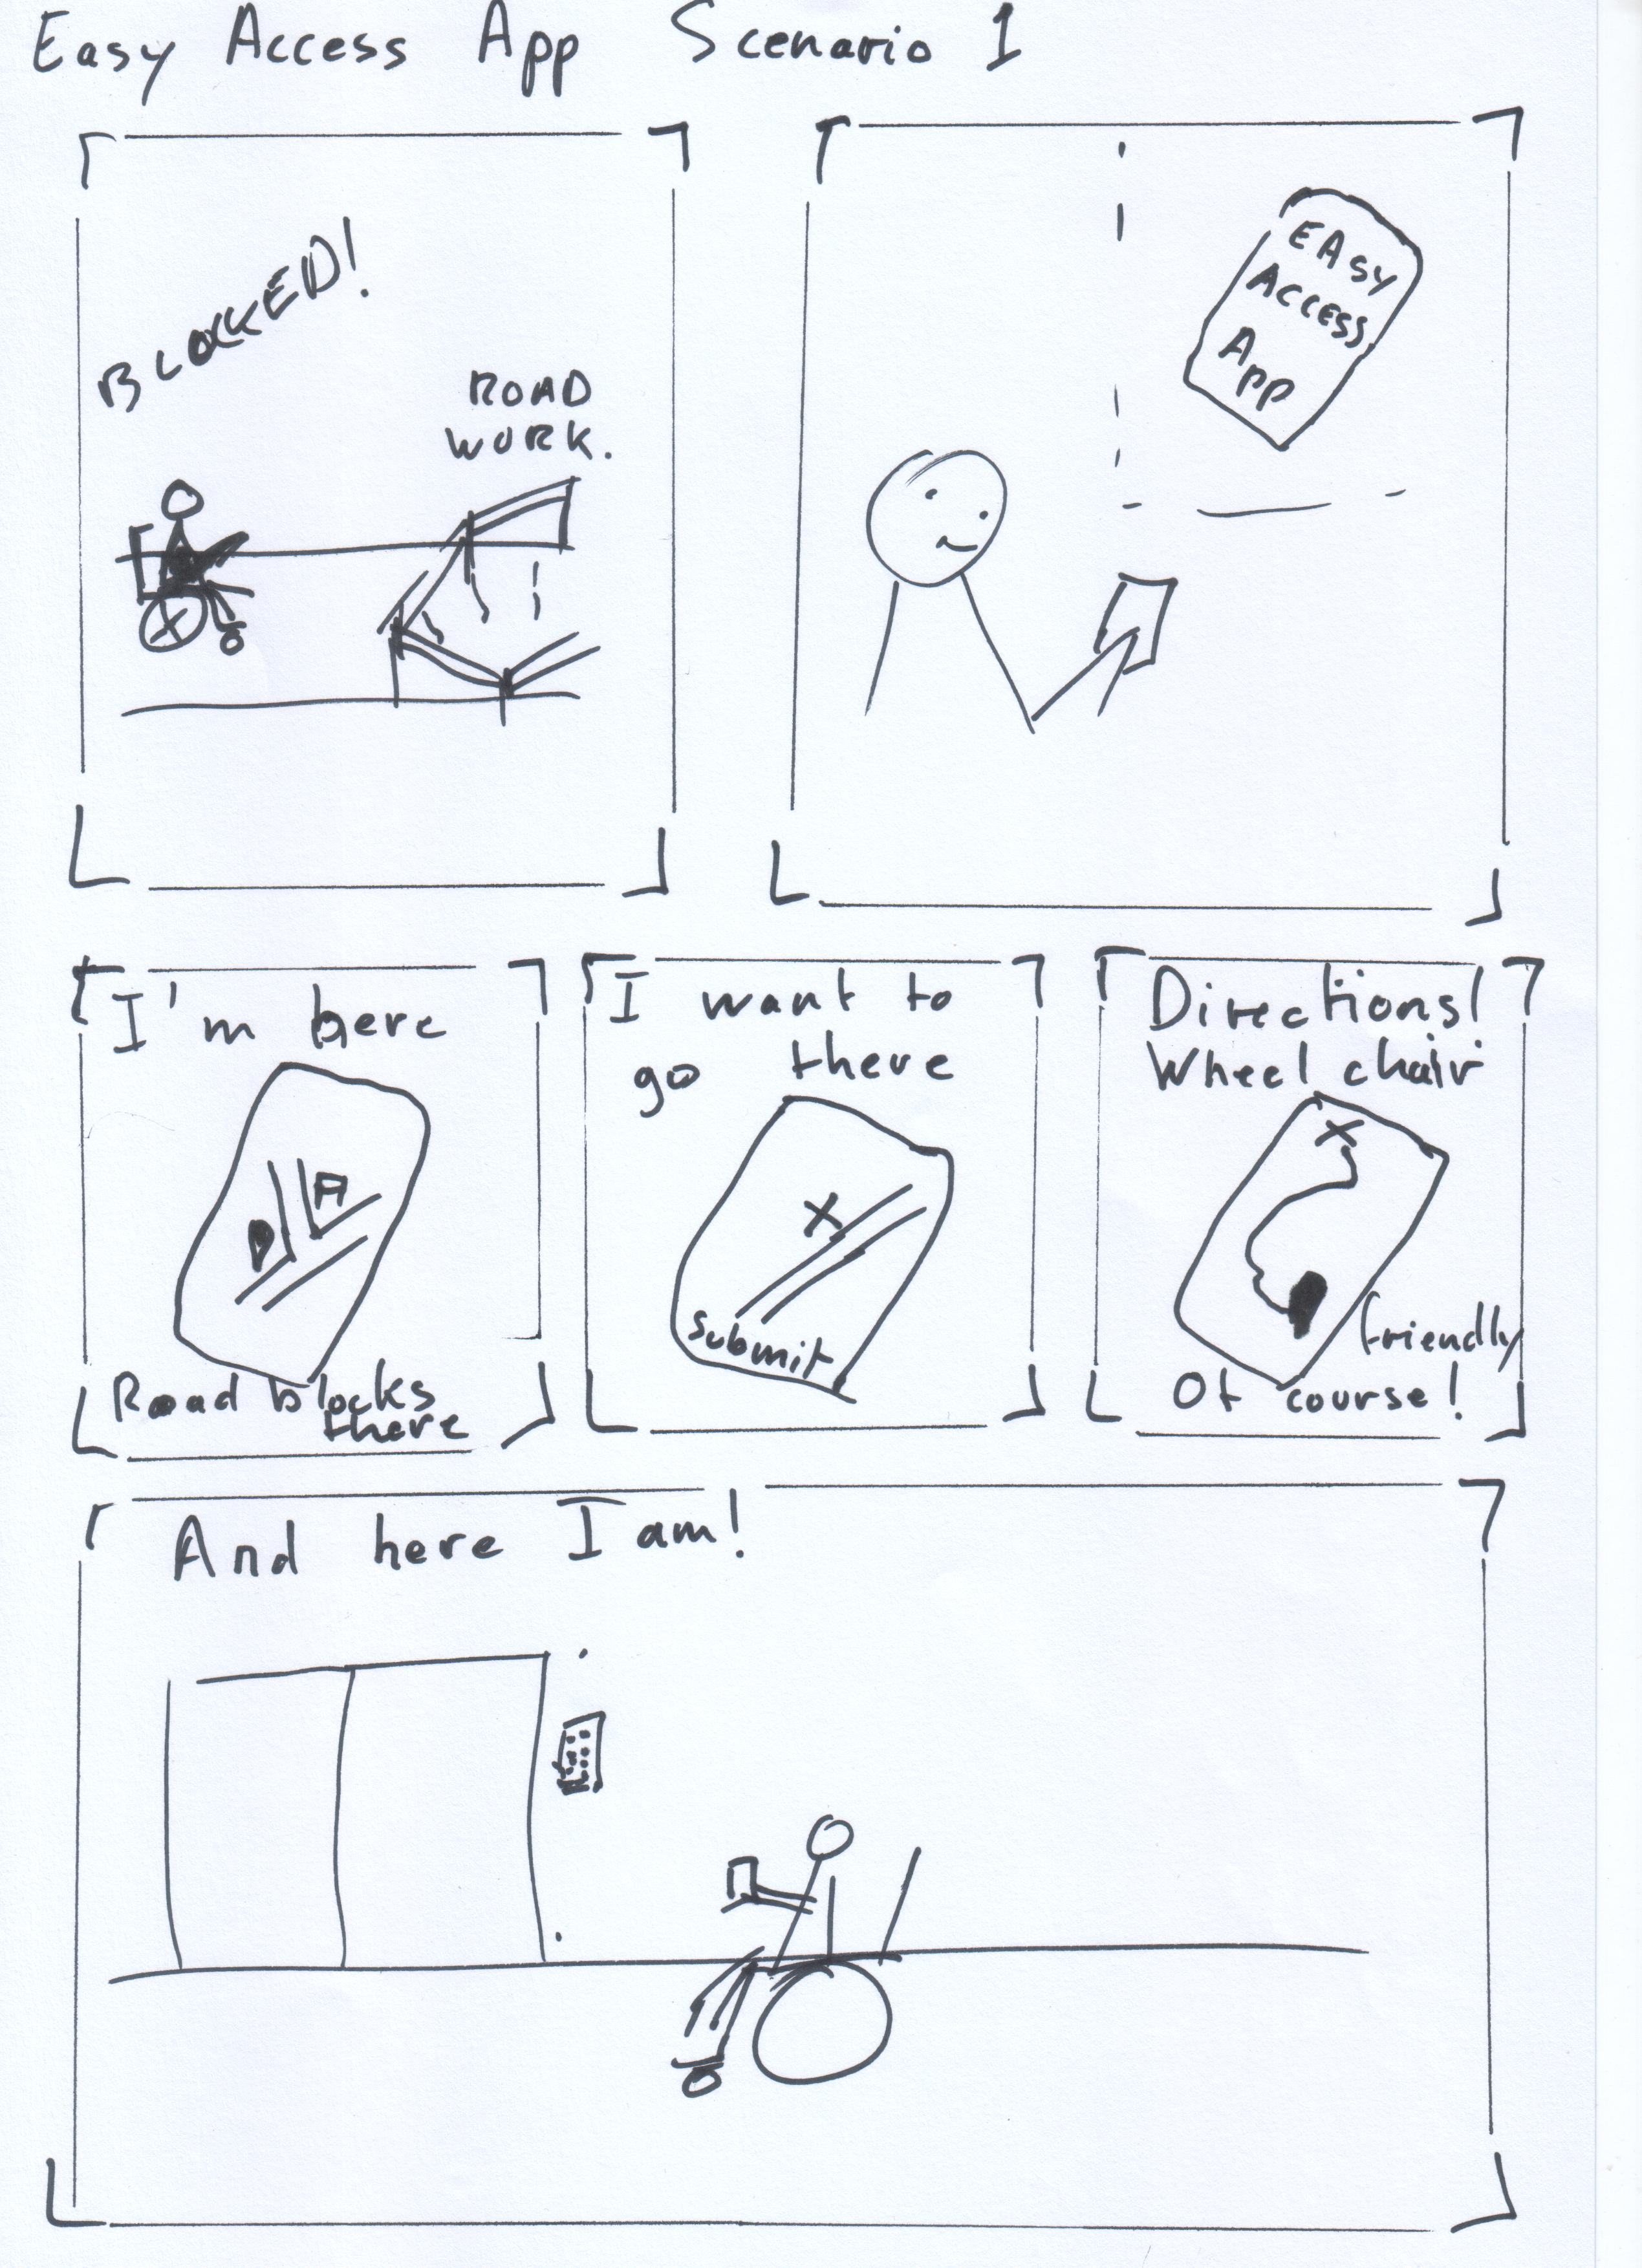 Easy Access App Scenario 1
BLOCKED!
ROAD
WORK.
EASY
ACCESS
APP
I'm here
Road blocks
there
I want to
go there
X
submit
Directions!
Wheel chair
X
friendly
Of course!
And here I am!